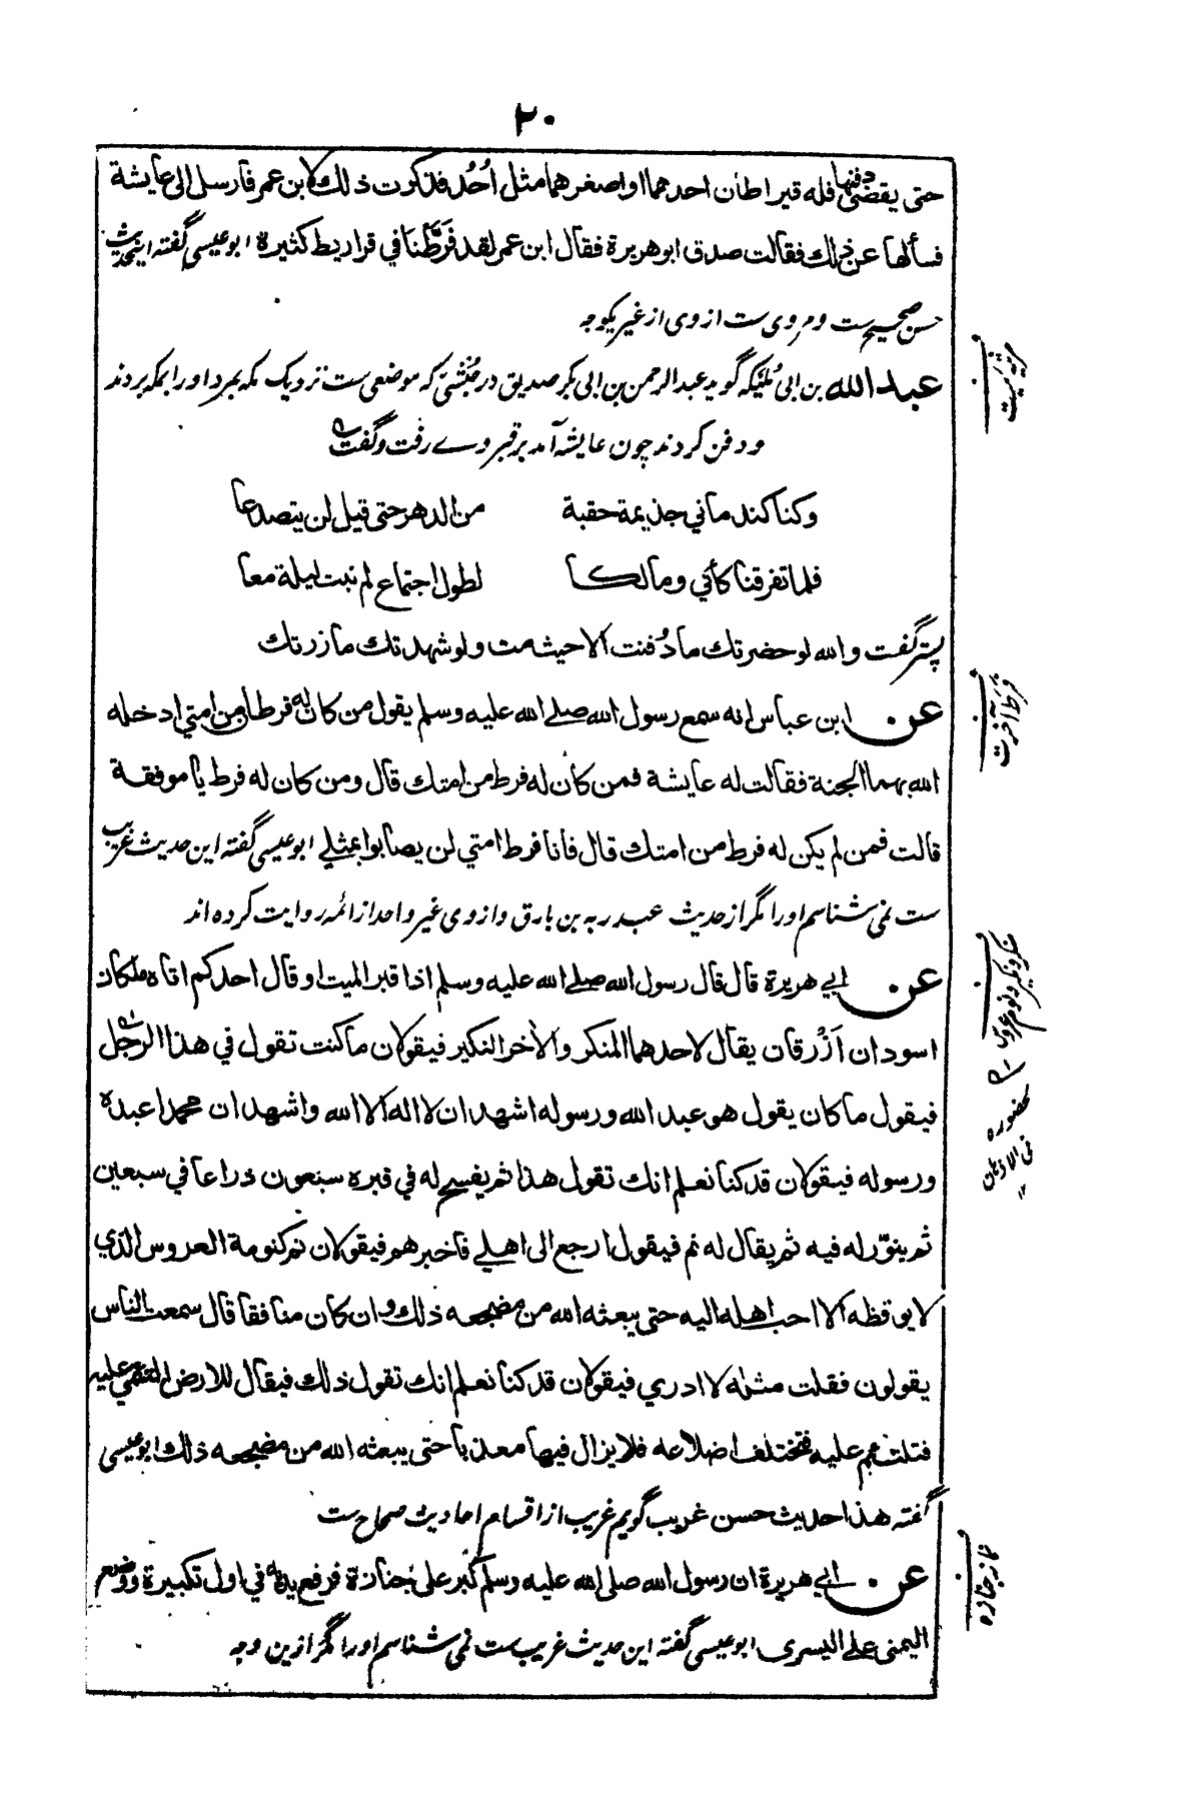 ٢٠
حتى يقضى دفنها فله قيراطان احدهما او اصغرهما مثل اُحُد فذكرت ذلك لابن عمر فارسل الى عايشة
فسألها عن ذلك فقالت صدق ابو هريرة فقال ابن عمر لقد فَرَّطْنَا في قراريط كثيرة ابو عيسى گفته اينحديث
حسن صحيح ست و مروى ست از وى از غير يكوجه
عبد الله بن ابى مُلَيكه گويد عبد الرحمن بن ابى بكر صديق در حُبْشِيّ كه موضعى ست نزديك مكه بمرد او را بمكه بردند
و دفن كردند چون عايشه آمد بر قبر وے رفت و گفت
وكنا كندماني جذيمة حقبة من الدهر حتى قيل لن يتصدعا
فلما تفرقنا كأني ومالكا لطول اجتماع لم نبت ليلة معا
پستر گفت والله لو حضرتك ما دُفنت الا حيث مت ولو شهدتك ما زرتك
عن ابن عباس انه سمع رسول الله صلے الله عليه وسلم يقول من كان له فرطان من امتي ادخله
الله بهما الجنة فقالت له عايشة فمن كان له فرط من امتك قال ومن كان له فرط يا موفقة
قالت فمن لم يكن له فرط من امتك قال فانا فرط امتي لن يصابوا بمثلي ابو عيسى گفته اين حديث غريب
ست نمى شناسم او را مگر از حديث عبد ربه بن بارق و از وى غير واحد از ائمه روايت كرده اند
عن ابي هريرة قال قال رسول الله صلے الله عليه وسلم اذا قبر الميت او قال احدكم اتاه ملكان
اسودان اَزْرقان يقال لاحدهما المنكر والأخر النكير فيقولان ما كنت تقول في هذا الرجل
فيقول ما كان يقول هو عبد الله ورسوله اشهد ان لا اله الا الله واشهد ان محمدا عبده
ورسوله فيقولان قد كنا نعلم انك تقول هذا ثم يفسح له في قبره سبعون ذراعا في سبعين
ثم ينوّر له فيه ثم يقال له نم فيقول ارجع الى اهلي فاخبرهم فيقولان نم كنومة العروس الذي
لا يوقظه الا احب اهله اليه حتى يبعثه الله من مضجعه ذلك وان كان منافقا قال سمعت الناس
يقولون فقلت مثله لا ادري فيقولان قد كنا نعلم انك تقول ذلك فيقال للارض التئمي عليه
فتلتئم عليه فتختلف اضلاعه فلا يزال فيها معذبا حتى يبعثه الله من مضجعه ذلك ابو عيسى
گفته هذا حديث حسن غريب گويم غريب از اقسام احاديث صحاح ست
عن ابي هريرة ان رسول الله صلى الله عليه وسلم كبر على جنازة فرفع يديه في اول تكبيرة ووضع
اليمنى على اليسرى ابو عيسى گفته اين حديث غريب ست نمى شناسم او را مگر ازين وجه
فرط آخرت
منكر و نكير و نوم عروس
اے
حضوره
فى الاذهان
١٢
نماز جنازه